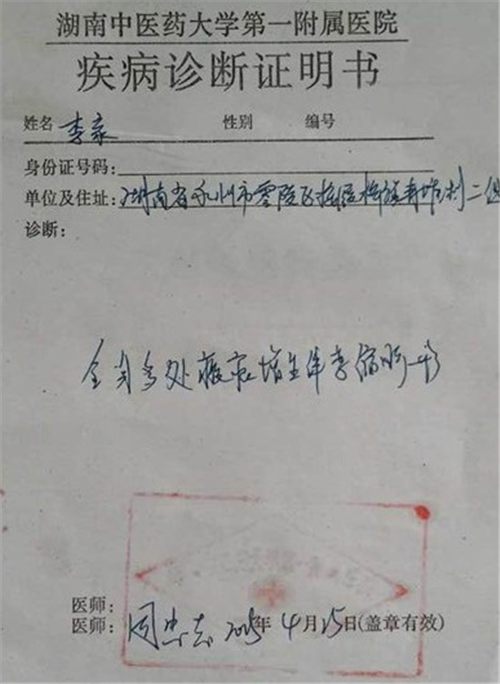 湖南中医药大学第一附属医院
疾病诊断证明书
姓名 李家 性别 编号
身份证号码:
单位及住址: 湖南省永州市零陵区
诊断:
全身多处瘢痕增生伴挛缩畸形
医师:
医师: 周忠志 2015年4月15日(盖章有效)